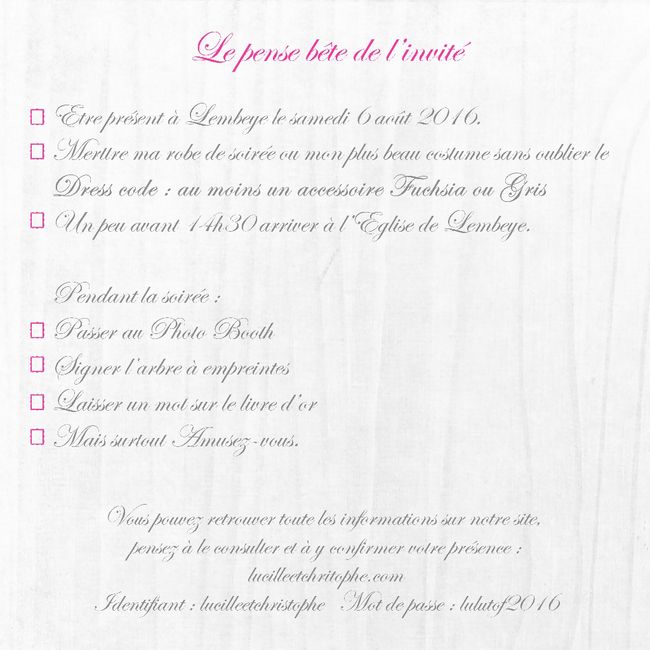 Le pense bête de l'invité
Etre présent à Lembeye le samedi 6 août 2016.
Merttre ma robe de soirée ou mon plus beau costume sans oublier le
Dress code : au moins un accessoire Fuchsia ou Gris
Un peu avant 14h30 arriver à l'Eglise de Lembeye.
Pendant la soirée :
Passer au Photo Booth
Signer l'arbre à empreintes
Laisser un mot sur le livre d'or
Mais surtout Amusez-vous.
Vous pouvez retrouver toute les informations sur notre site,
pensez à le consulter et à y confirmer votre présence :
lucilleetchritophe.com
Identifiant : lucilleetchristophe Mot de passe : lulutof2016